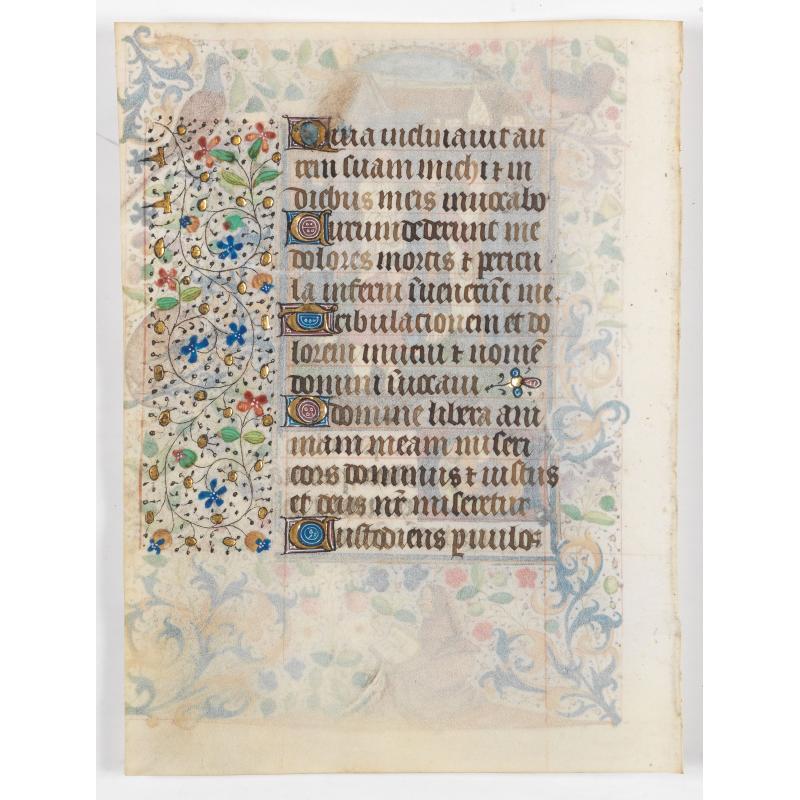 Quia inclinavit au
rem suam michi ⁊ in
diebus meis invocabo
Circumdederunt me
dolores mortis ⁊ pericu
la inferni īvenerūt me.
Tribulacionem et do
lorem inveni ⁊ nomē
domini īvocavi
O domine libera ani
mam meam miseri
cors dominus ⁊ iustus
et deus nr̄ miseretur
Custodiens pvulos